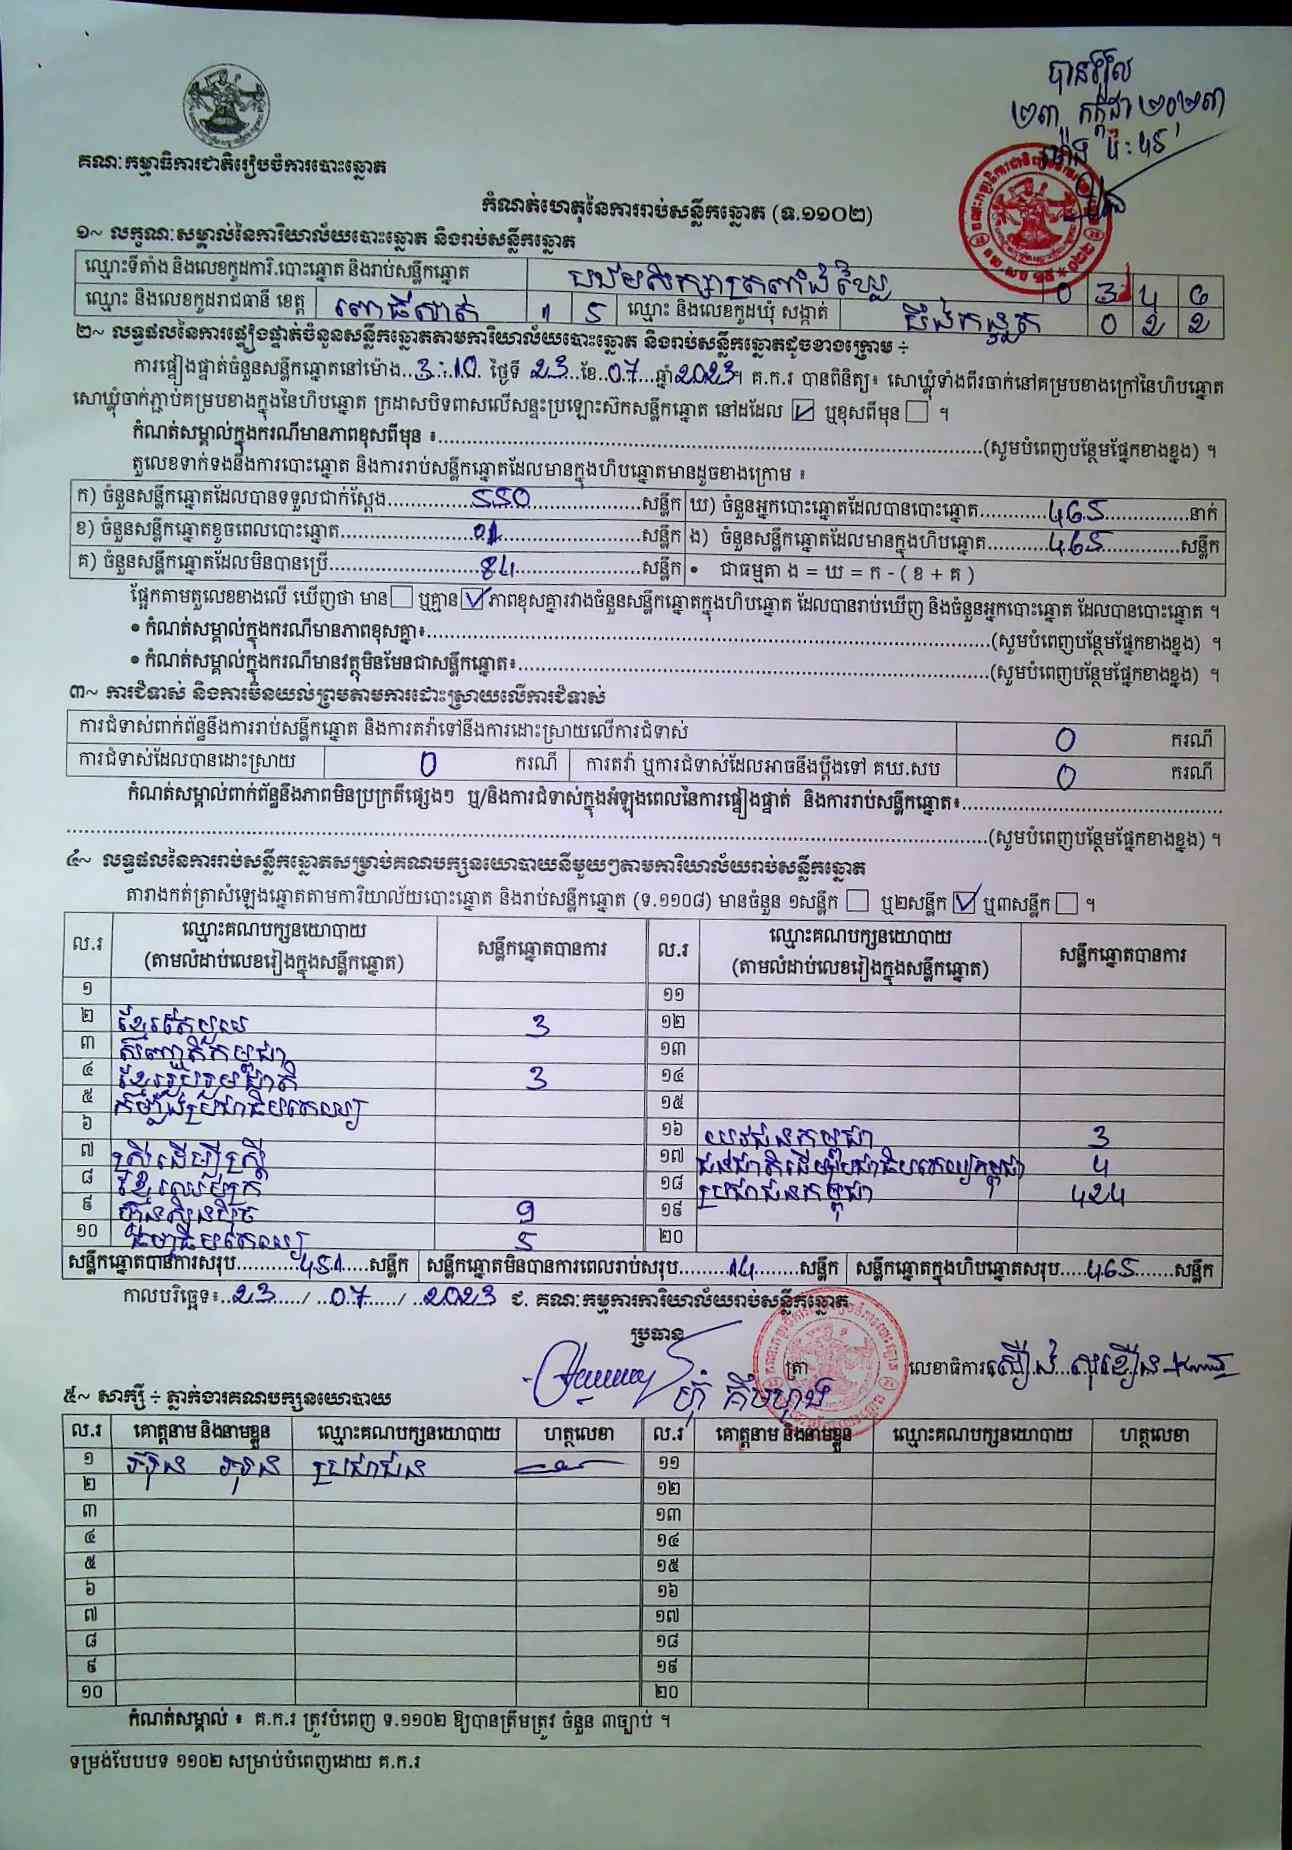 បានឃើញ
២៣ កក្កដា ២០២៣
ម៉ោង ៤:45
គណៈកម្មាធិការជាតិរៀបចំការបោះឆ្នោត
កំណត់ហេតុនៃការរាប់សន្លឹកឆ្នោត (ទ.១១០២)
១~ លក្ខណៈសម្គាល់នៃការិយាល័យបោះឆ្នោត និងរាប់សន្លឹកឆ្នោត
ឈ្មោះទីតាំង និងលេខកូដការិ.បោះឆ្នោត និងរាប់សន្លឹកឆ្នោត 0 3 4 6
ឈ្មោះ និងលេខកូដរាជធានី ខេត្ត ពោធិ៍សាត់ 1 5 ឈ្មោះ និងលេខកូដឃុំ សង្កាត់ 0 2 2
២~ លទ្ធផលនៃការផ្ទៀងផ្ទាត់ចំនួនសន្លឹកឆ្នោតតាមការិយាល័យបោះឆ្នោត និងរាប់សន្លឹកឆ្នោតដូចខាងក្រោម ÷
ការផ្ទៀងផ្ទាត់ចំនួនសន្លឹកឆ្នោតនៅម៉ោង 3:10 ថ្ងៃទី 23 ខែ 07 ឆ្នាំ 2023។ គ.ក.រ បានពិនិត្យ៖ សោឃ្លុំទាំងពីរចាក់នៅគម្របខាងក្រៅនៃហិបឆ្នោត
សោឃ្លុំចាក់ភ្ជាប់គម្របខាងក្នុងនៃហិបឆ្នោត ក្រដាសបិទពាសលើសន្ទះប្រឡោះស៊កសន្លឹកឆ្នោត នៅដដែល ☑ ឬខុសពីមុន ☐ ។
កំណត់សម្គាល់ក្នុងករណីមានភាពខុសពីមុន ៖ (សូមបំពេញបន្ថែមផ្នែកខាងខ្នង) ។
តួលេខទាក់ទងនឹងការបោះឆ្នោត និងការរាប់សន្លឹកឆ្នោតដែលមានក្នុងហិបឆ្នោតមានដូចខាងក្រោម ៖
ក) ចំនួនសន្លឹកឆ្នោតដែលបានទទួលជាក់ស្តែង 550 សន្លឹក ឃ) ចំនួនអ្នកបោះឆ្នោតដែលបានបោះឆ្នោត 465 នាក់
ខ) ចំនួនសន្លឹកឆ្នោតខូចពេលបោះឆ្នោត 01 សន្លឹក ង) ចំនួនសន្លឹកឆ្នោតដែលមានក្នុងហិបឆ្នោត 465 សន្លឹក
គ) ចំនួនសន្លឹកឆ្នោតដែលមិនបានប្រើ 84 សន្លឹក • ជាធម្មតា ង = ឃ = ក - ( ខ + គ )
ផ្អែកតាមតួលេខខាងលើ ឃើញថា មាន ☐ ឬគ្មាន ☑ ភាពខុសគ្នារវាងចំនួនសន្លឹកឆ្នោតក្នុងហិបឆ្នោត ដែលបានរាប់ឃើញ និងចំនួនអ្នកបោះឆ្នោត ដែលបានបោះឆ្នោត ។
• កំណត់សម្គាល់ក្នុងករណីមានភាពខុសគ្នា៖ (សូមបំពេញបន្ថែមផ្នែកខាងខ្នង) ។
• កំណត់សម្គាល់ក្នុងករណីមានវត្ថុមិនមែនជាសន្លឹកឆ្នោត៖ (សូមបំពេញបន្ថែមផ្នែកខាងខ្នង) ។
៣~ ការជំទាស់ និងការមិនយល់ព្រមតាមការដោះស្រាយលើការជំទាស់
ការជំទាស់ពាក់ព័ន្ធនឹងការរាប់សន្លឹកឆ្នោត និងការតវ៉ាទៅនឹងការដោះស្រាយលើការជំទាស់ 0 ករណី
ការជំទាស់ដែលបានដោះស្រាយ 0 ករណី ការតវ៉ា ឬការជំទាស់ដែលអាចនឹងប្តឹងទៅ គឃ.សប 0 ករណី
កំណត់សម្គាល់ពាក់ព័ន្ធនឹងភាពមិនប្រក្រតីផ្សេងៗ ឬ/និងការជំទាស់ក្នុងអំឡុងពេលនៃការផ្ទៀងផ្ទាត់ និងការរាប់សន្លឹកឆ្នោត៖
(សូមបំពេញបន្ថែមផ្នែកខាងខ្នង) ។
៤~ លទ្ធផលនៃការរាប់សន្លឹកឆ្នោតសម្រាប់គណបក្សនយោបាយនីមួយៗតាមការិយាល័យរាប់សន្លឹកឆ្នោត
តារាងកត់ត្រាសំឡេងឆ្នោតតាមការិយាល័យបោះឆ្នោត និងរាប់សន្លឹកឆ្នោត (ទ.១១០៨) មានចំនួន ១សន្លឹក ☐ ឬ២សន្លឹក ☑ ឬ៣សន្លឹក ☐ ។
ល.រ ឈ្មោះគណបក្សនយោបាយ (តាមលំដាប់លេខរៀងក្នុងសន្លឹកឆ្នោត) សន្លឹកឆ្នោតបានការ ល.រ ឈ្មោះគណបក្សនយោបាយ (តាមលំដាប់លេខរៀងក្នុងសន្លឹកឆ្នោត) សន្លឹកឆ្នោតបានការ
១ ១១
២ ខ្មែរតែមួយ 3 ១២
៣ សញ្ជាតិកម្ពុជា ១៣
៤ ខ្មែររួបរួមជាតិ 3 ១៤
៥ កម្លាំងប្រជាធិបតេយ្យ ១៥
៦ ១៦ យុវជនកម្ពុជា 3
៧ ស្ត្រីដើម្បីស្ត្រី ១៧ ជនជាតិដើមប្រជាធិបតេយ្យកម្ពុជា 4
៨ ខ្មែរឈប់ក្រ ១៨ ប្រជាជនកម្ពុជា 424
៩ ហ្វ៊ុនស៊ិនប៉ិច 9 ១៩
១០ ធម្មាធិបតេយ្យ 5 ២០
សន្លឹកឆ្នោតបានការសរុប 451 សន្លឹក សន្លឹកឆ្នោតមិនបានការពេលរាប់សរុប 14 សន្លឹក សន្លឹកឆ្នោតក្នុងហិបឆ្នោតសរុប 465 សន្លឹក
កាលបរិច្ឆេទ៖ 23 / 07 / 2023 ជ. គណៈកម្មការការិយាល័យរាប់សន្លឹកឆ្នោត
ប្រធាន
ត្រា លេខាធិការ
៥~ សាក្សី ÷ ភ្នាក់ងារគណបក្សនយោបាយ
ល.រ គោត្តនាម និងនាមខ្លួន ឈ្មោះគណបក្សនយោបាយ ហត្ថលេខា ល.រ គោត្តនាម និងនាមខ្លួន ឈ្មោះគណបក្សនយោបាយ ហត្ថលេខា
១ ប្រជាជន ១១
២ ១២
៣ ១៣
៤ ១៤
៥ ១៥
៦ ១៦
៧ ១៧
៨ ១៨
៩ ១៩
១០ ២០
កំណត់សម្គាល់ ៖ គ.ក.រ ត្រូវបំពេញ ទ.១១០២ ឱ្យបានត្រឹមត្រូវ ចំនួន ៣ច្បាប់ ។
ទម្រង់បែបបទ ១១០២ សម្រាប់បំពេញដោយ គ.ក.រ